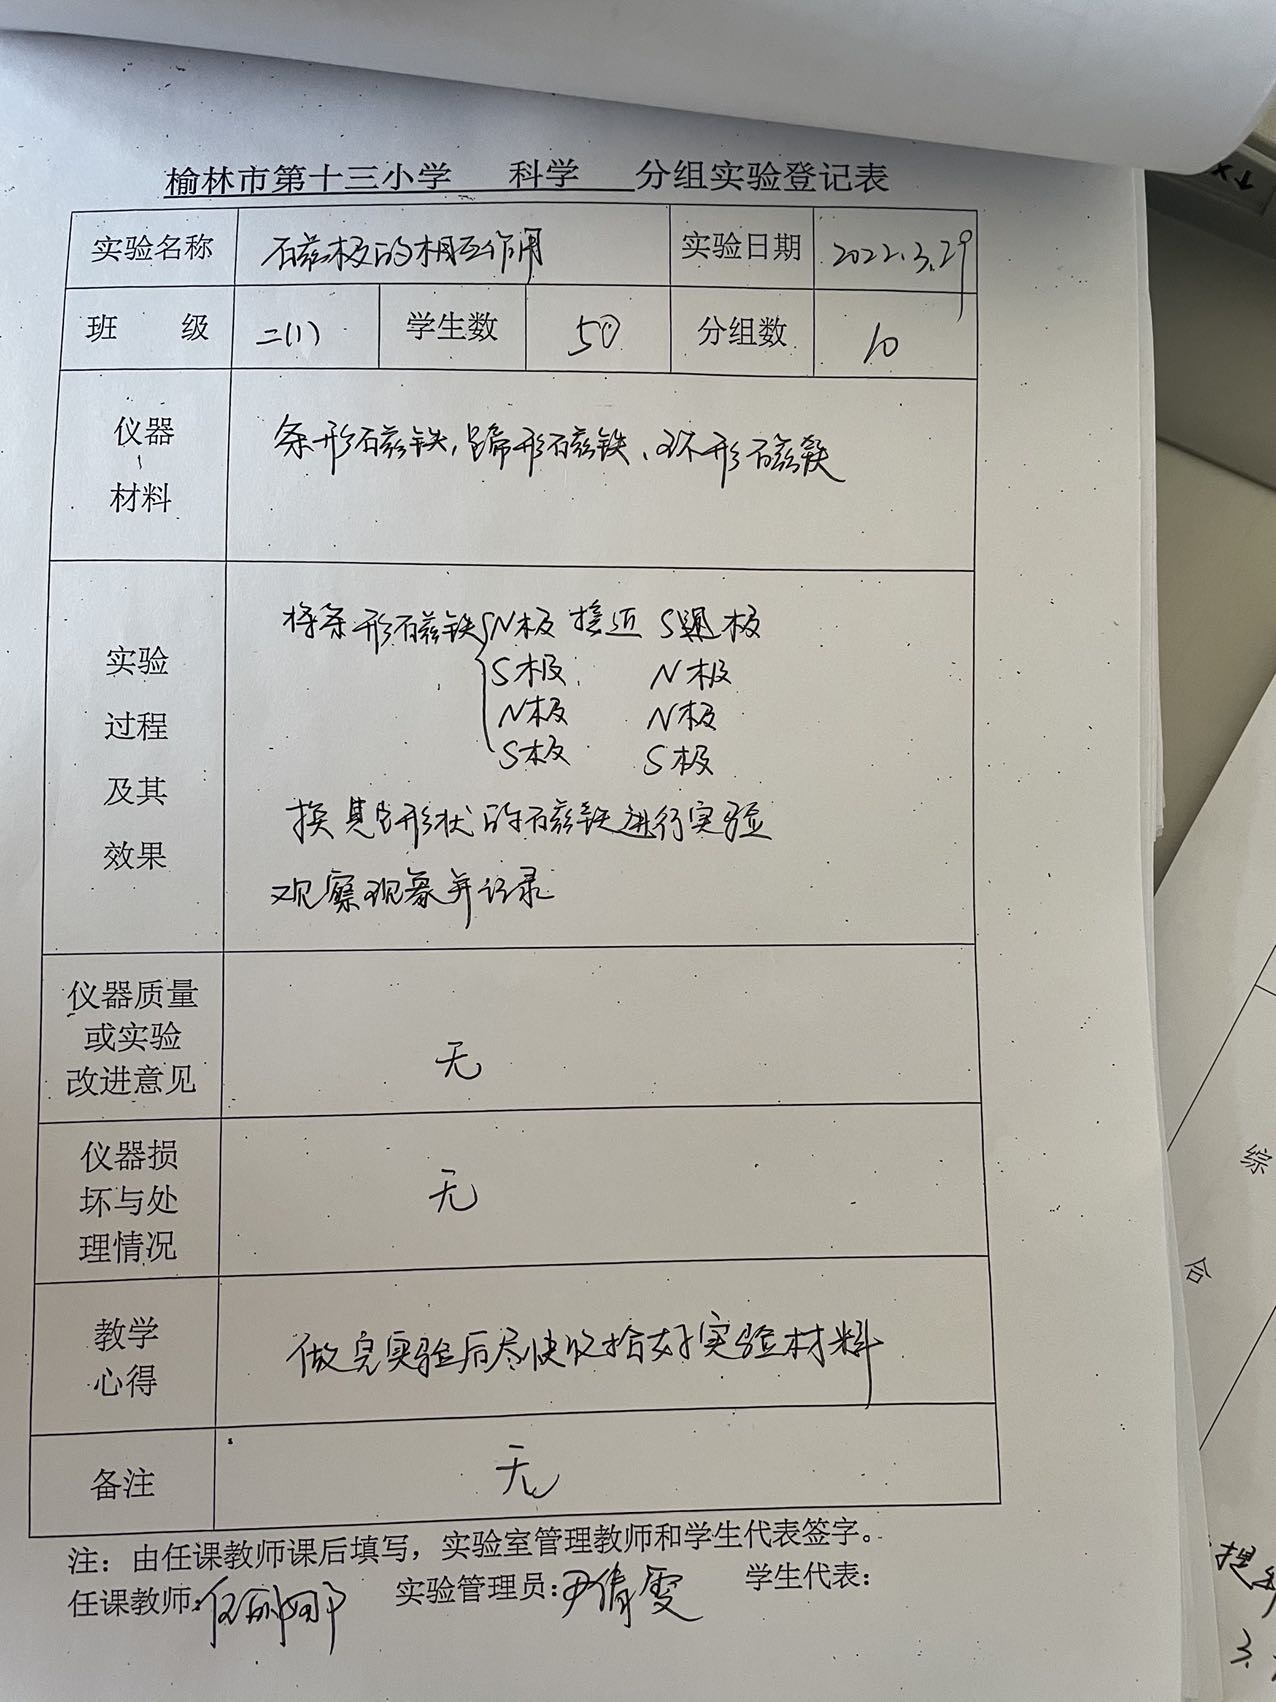 榆林市第十三小学 科学 分组实验登记表
实验名称 磁极的相互作用 实验日期 2022.3.29
班 级 二(1) 学生数 50 分组数 10
仪器
材料
条形磁铁,蹄形磁铁、环形磁铁
实验
过程
及其
效果
将条形磁铁 N极 接近 S极
S极 N极
N极 N极
S极 S极
换其它形状的磁铁进行实验
观察现象并记录
仪器质量
或实验
改进意见
无
仪器损
坏与处
理情况
无
教学
心得
做完实验后尽快收拾好实验材料
备注 无
注：由任课教师课后填写，实验室管理教师和学生代表签字。
任课教师: 实验管理员:尹倩雯 学生代表:
综
合